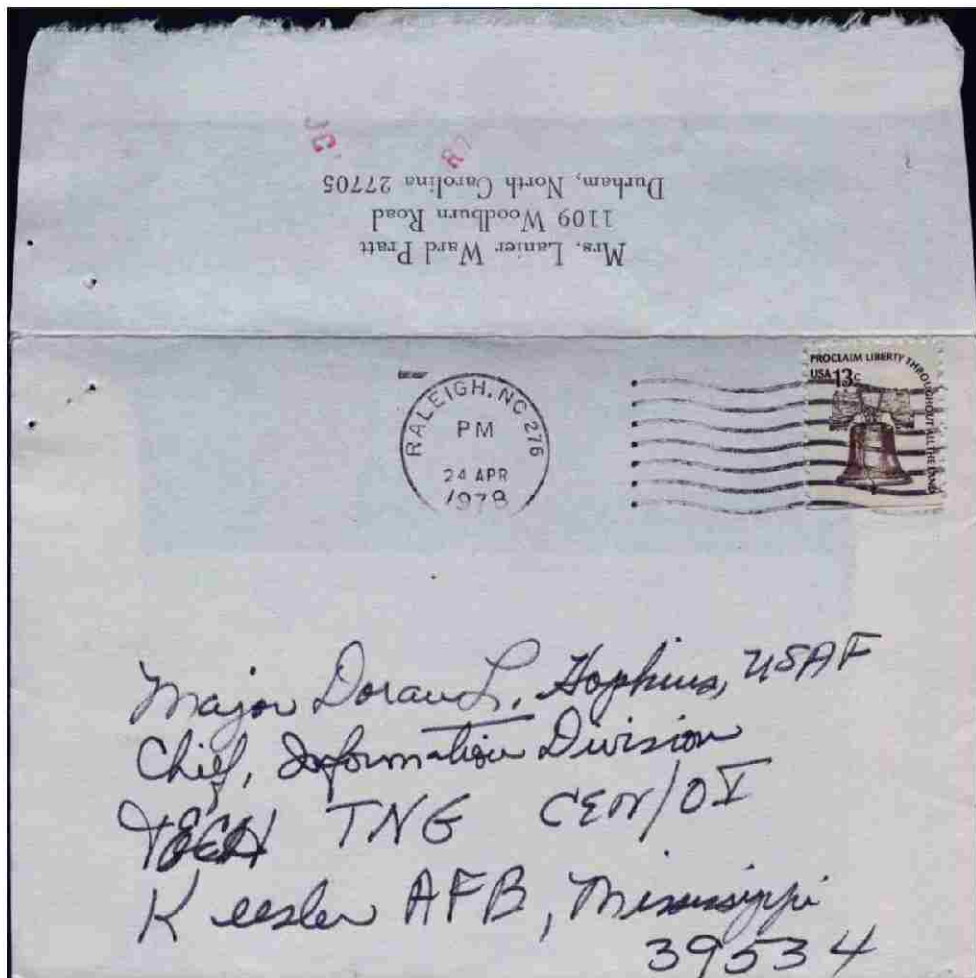 Mrs. Lanier Ward Pratt
1109 Woodburn Road
Durham, North Carolina 27705
JC
RALEIGH, NC 276
PM
24 APR
1978
PROCLAIM LIBERTY THROUGHOUT ALL THE LAND
USA 13c
Major Doran L. Hopkins, USAF
Chief, Information Division
TECH TNG CEN/OI
Keesler AFB, Mississippi
39534